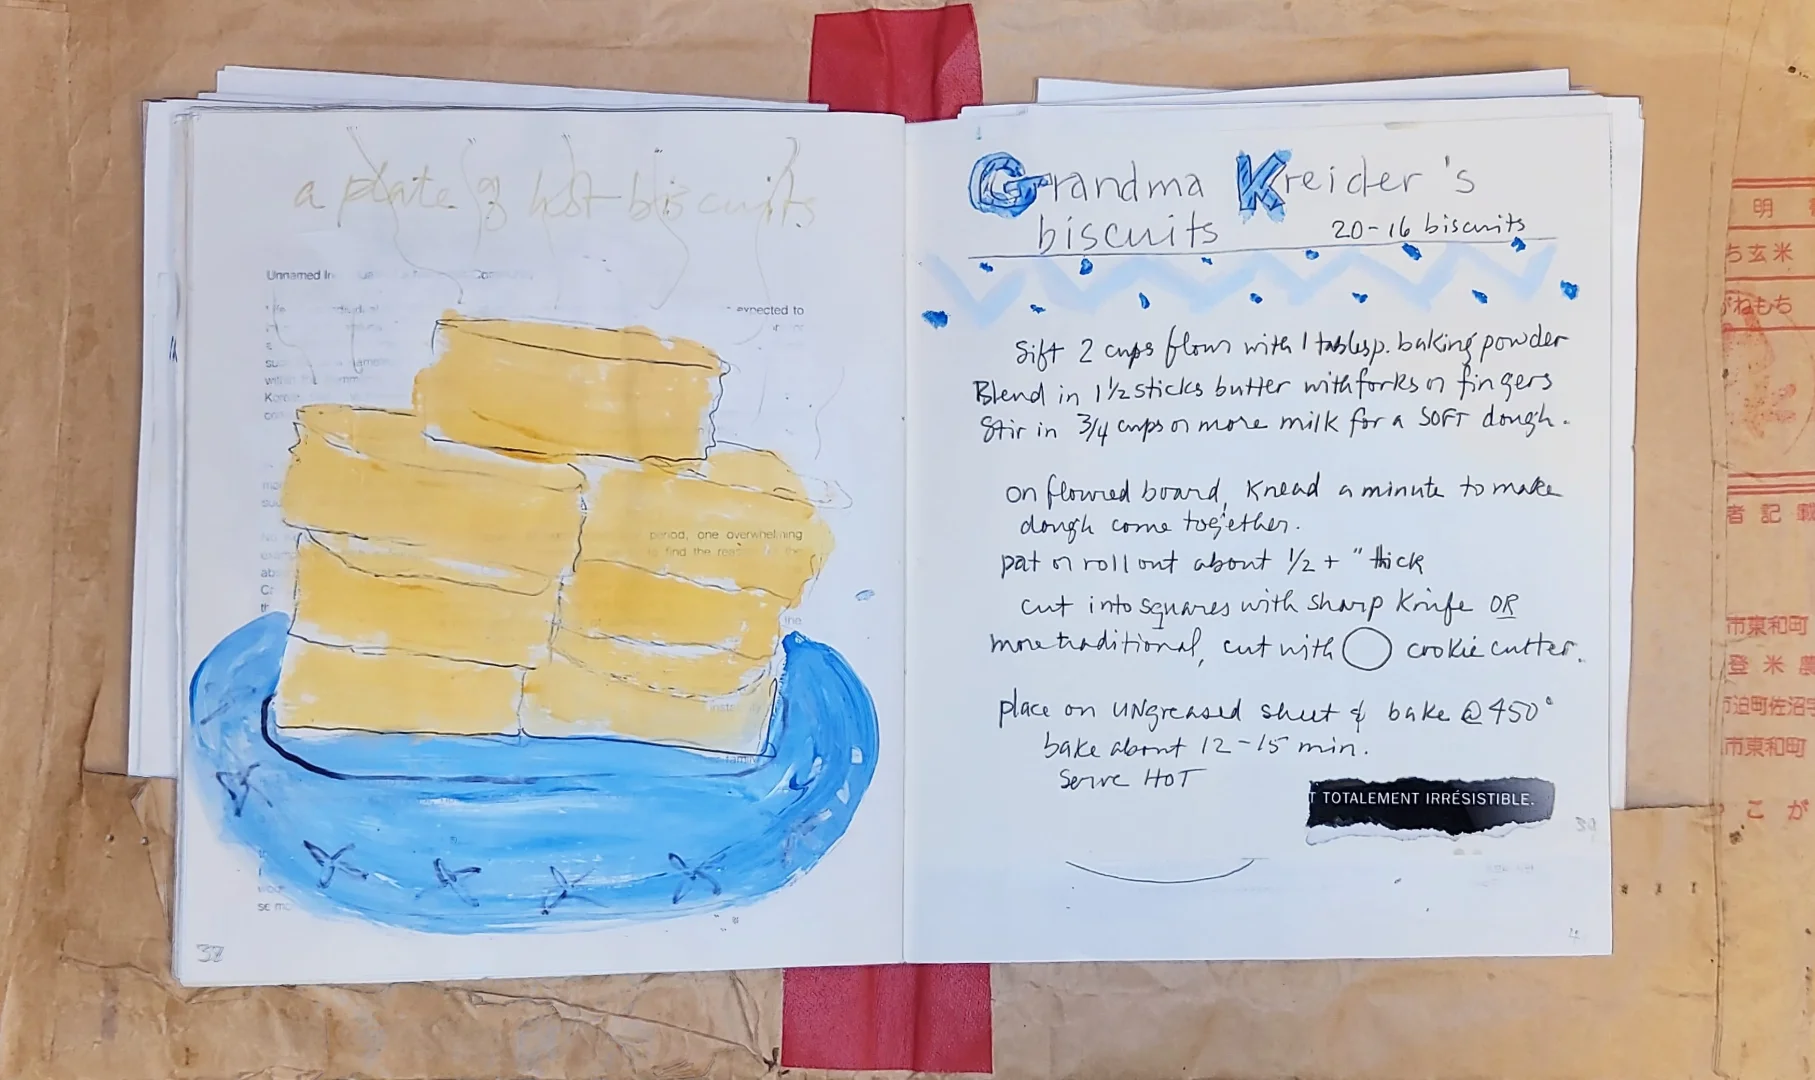 a plate of hot biscuits
Unnamed
expected to
period, one overwhelming
find the
38
Grandma Kreider's
biscuits
20-16 biscuits
Sift 2 cups flour with 1 tablesp. baking powder
Blend in 1 1/2 sticks butter with forks or fingers
Stir in 3/4 cups or more milk for a SOFT dough.
on floured board, knead a minute to make
dough come together.
pat or roll out about 1/2 + " thick
cut into squares with sharp knife OR
more traditional, cut with cookie cutter.
place on UNgreased sheet & bake @ 450°
bake about 12-15 min.
Serve HOT
T TOTALEMENT IRRÉSISTIBLE.
明
ち玄米
がねもち
者記載
市東和町
登米農
市迫町佐沼字
市東和町
こが